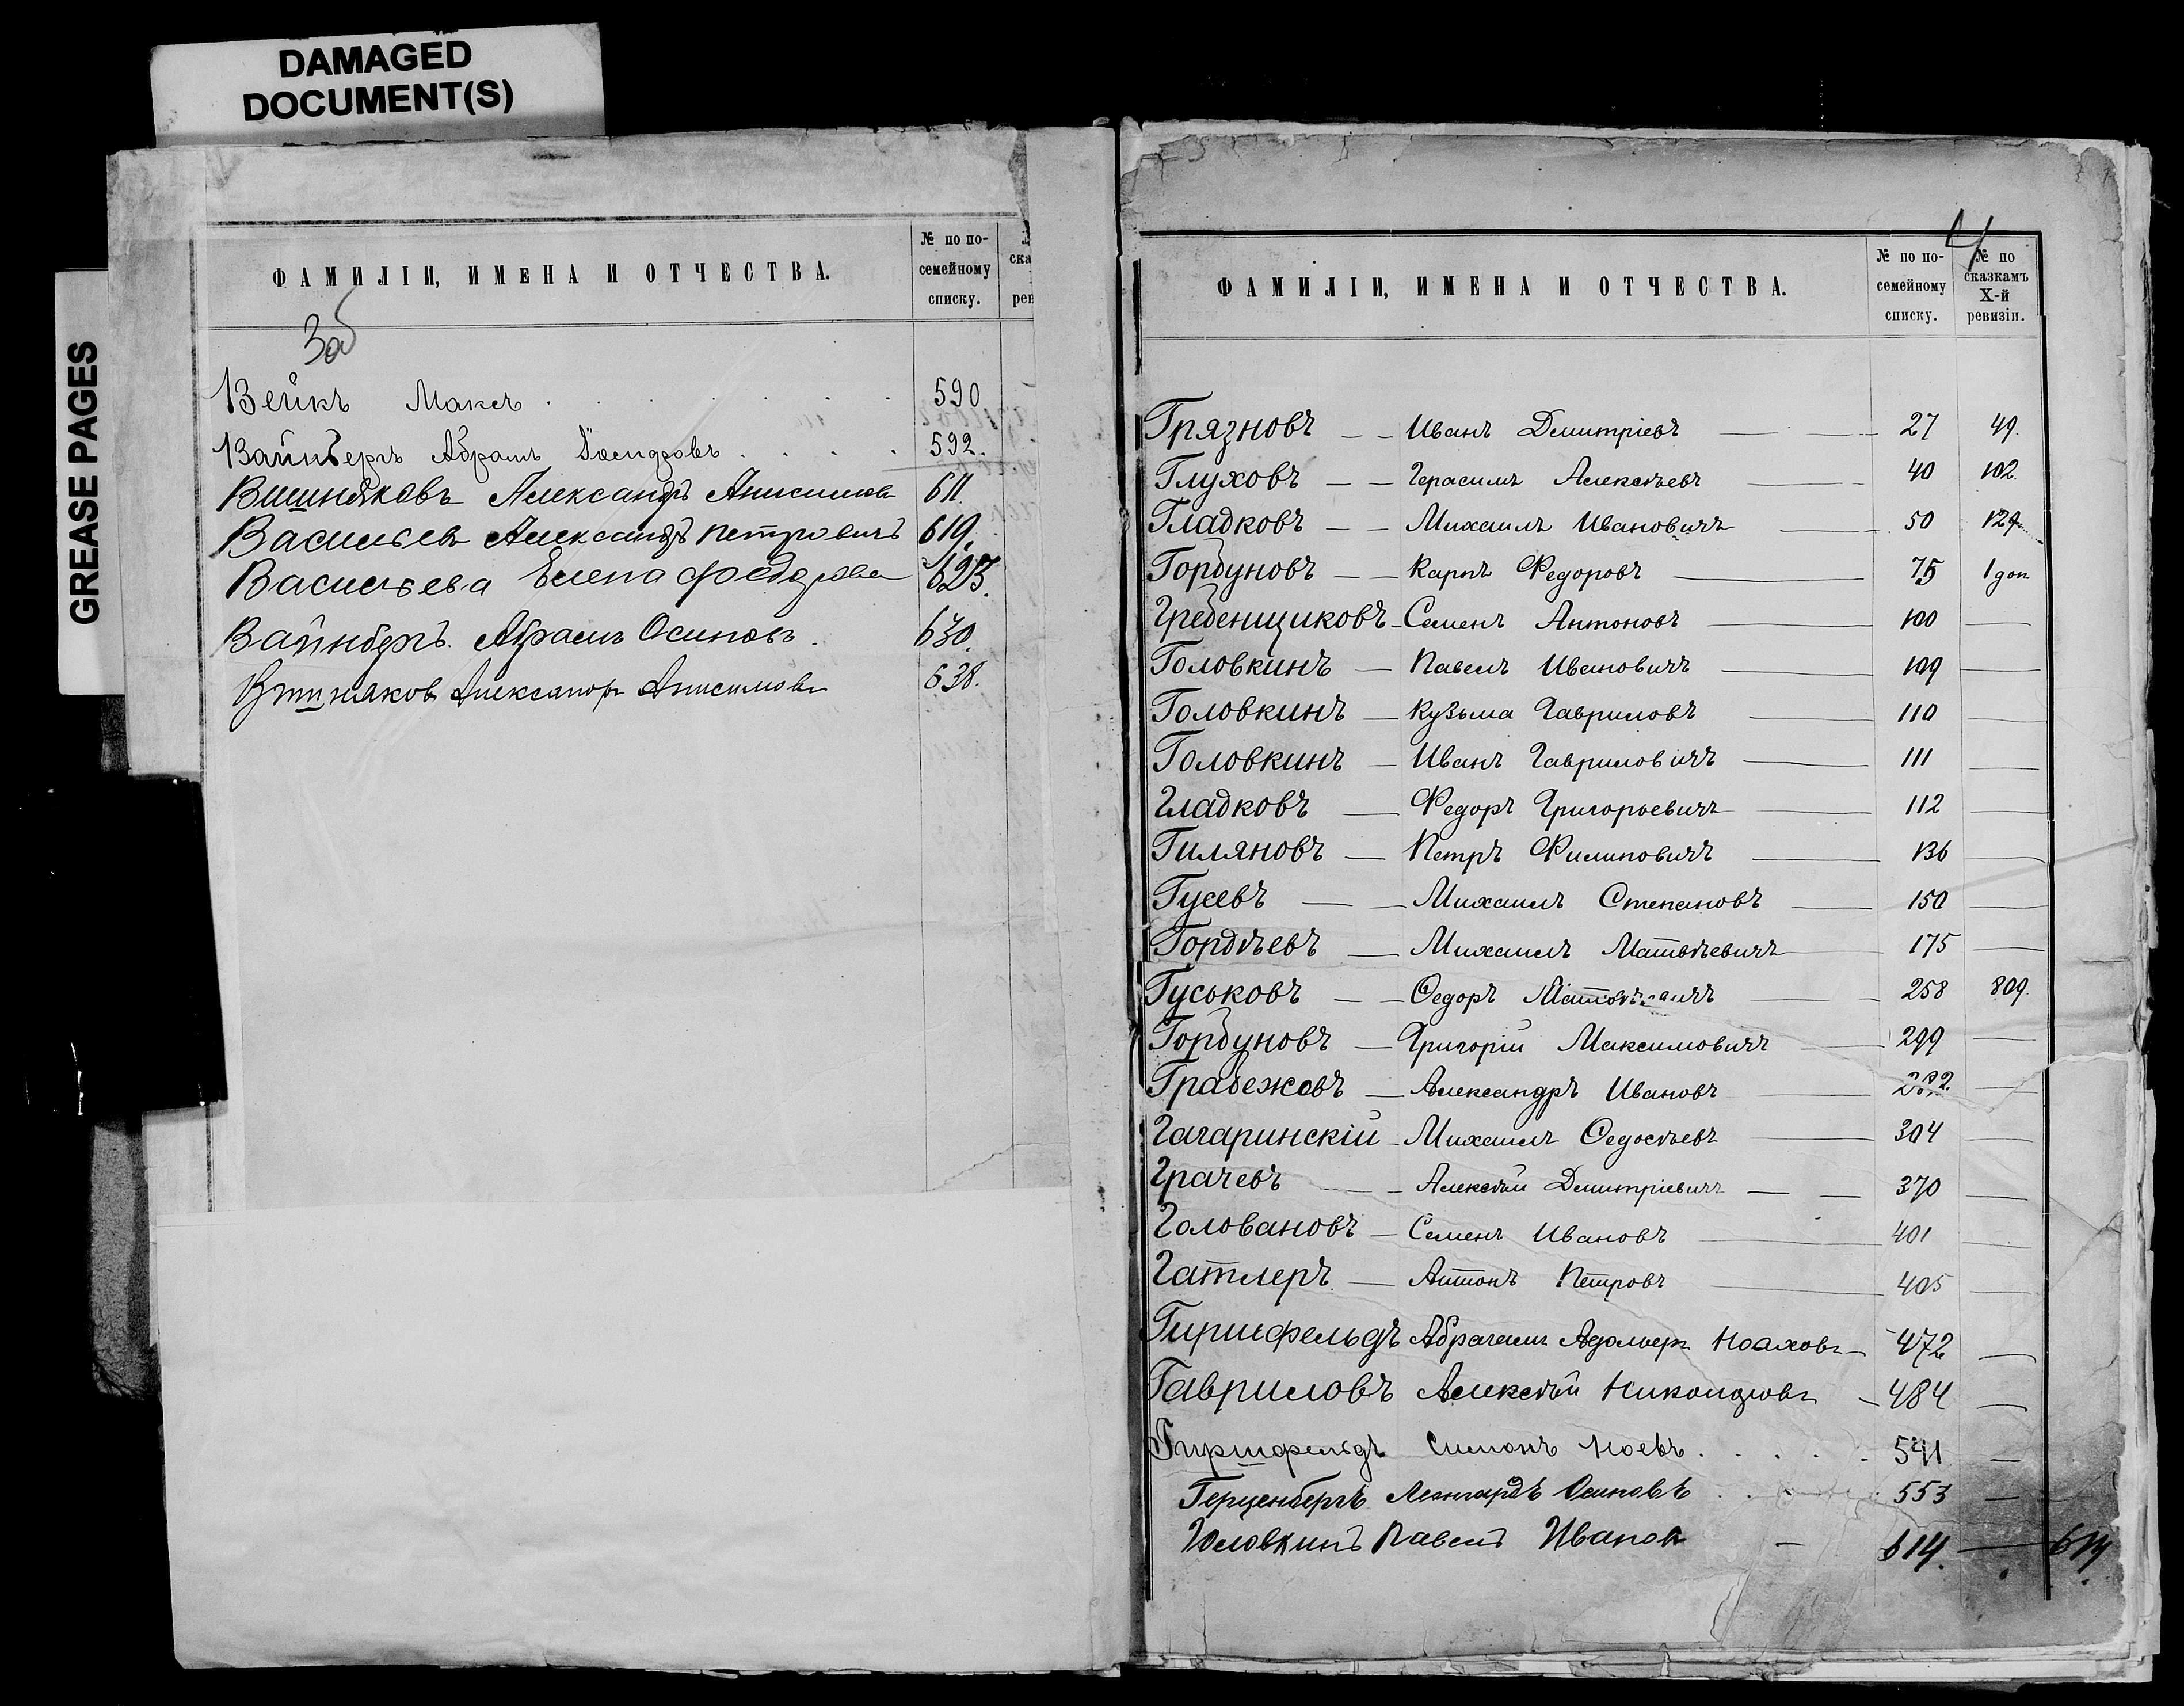 DAMAGED
DOCUMENT(S)
GREASE PAGES
ФАМИЛІИ, ИМЕНА И ОТЧЕСТВА.
№ по по-
семейному
списку.
ска
рев
3об
Вейкъ Максъ . . . . . . . 590
Вайнбергъ Абрамъ Іосифовъ . . . . 592.
Вишняковъ Александръ Анисимовъ 611.
Васильевъ Александръ Петровичъ 619.
Васильева Елена Федорова 623.
Вайнбергъ. Абрамъ Осиповъ. 630.
Вишняковъ Александръ Анисимовъ 638.
4
ФАМИЛІИ, ИМЕНА И ОТЧЕСТВА.
№ по по-
семейному
списку.
№ по
сказкамъ
X-й
ревизіи.
Грязновъ — — Иванъ Дмитріевъ — — 27 49.
Глуховъ — — Герасимъ Алексѣевъ — 40 102.
Гладковъ — — Михаилъ Ивановичъ — 50 129.
Горбуновъ — — Карпъ Федоровъ — 75 1 доп
Гребенщиковъ — Семенъ Антоновъ — 100 —
Головкинъ — Павелъ Ивановичъ — 109 —
Головкинъ — Кузьма Гавриловъ — 110 —
Головкинъ — Иванъ Гавриловичъ — 111 —
Гладковъ — Федоръ Григорьевичъ — 112 —
Гиляновъ — Петръ Филиповичъ — 136 —
Гусевъ — — Михаилъ Степановъ — 150 —
Гордѣевъ — Михаилъ Матвѣевичъ — 175 —
Гуськовъ — — Ѳедоръ — 258 809.
Горбуновъ — Григорій Максимовичъ — 299 —
Грабежовъ — Александръ Ивановъ — —
Гагаринскій — Михаилъ Ѳедосѣевъ — 304 —
Грачевъ — — Алексѣй Дмитріевичъ — — 370 —
Головановъ — Семенъ Ивановъ — 401 —
Гатлеръ — Антонъ Петровъ — 405 —
Гиршфельдъ Абрагамъ Адольфъ Ноаховъ — 472 —
Гавриловъ Алексѣй — 484 —
Гиршфельдъ Симонъ Ноевъ. . . . . 541 —
Герценбергъ Леонгардъ Осиповъ . . . 553 —
Головкинъ Павелъ Ивановъ — 614. — 614